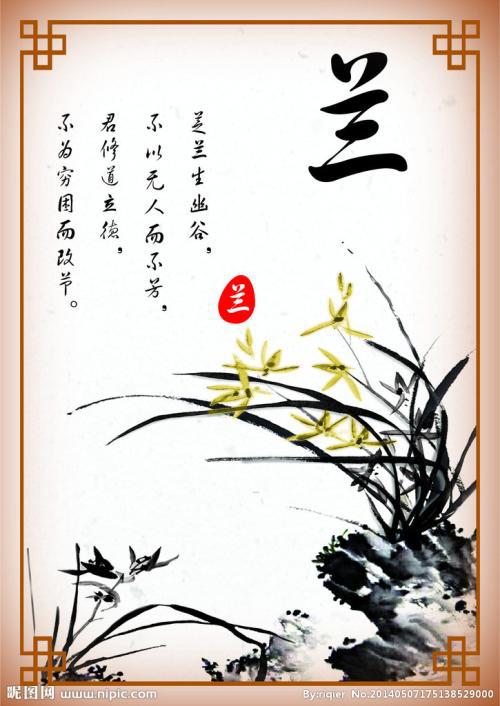 兰
芝兰生幽谷，
不以无人而不芳，
君修道立德，
不为穷困而改节。
兰
昵图网 www.nipic.com
By:riqier No.20140507175138529000